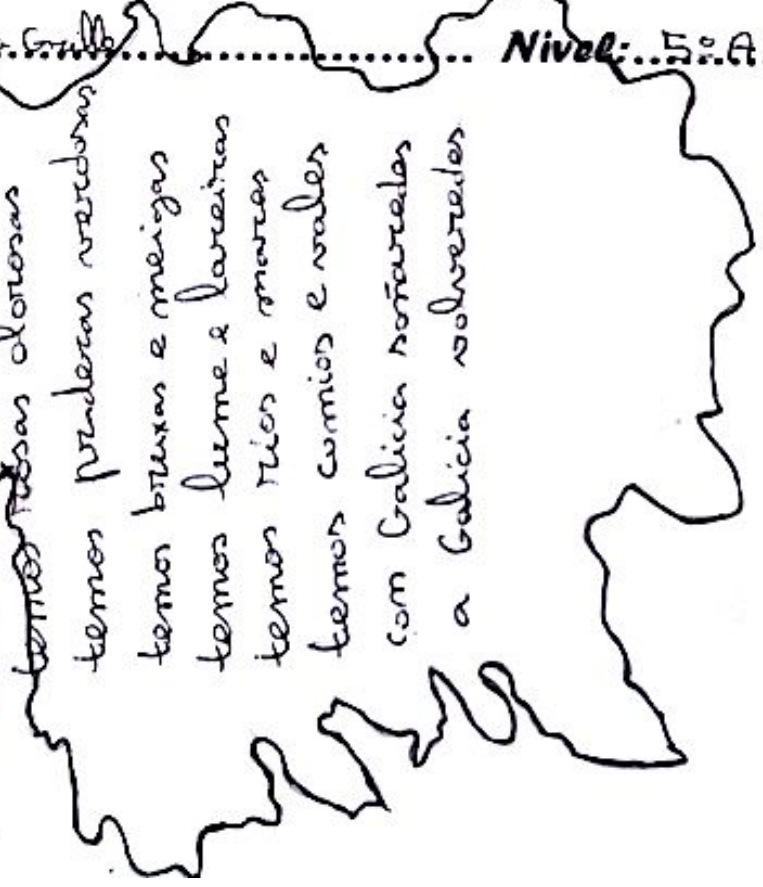 Grille Nivel: 5º A
temos rosas olorosas
temos praderas verdosas
temos bruxas e meigas
temos lume e lareiras
temos ríos e mares
temos cumios e vales
con Galicia soñaredes
a Galicia volveredes